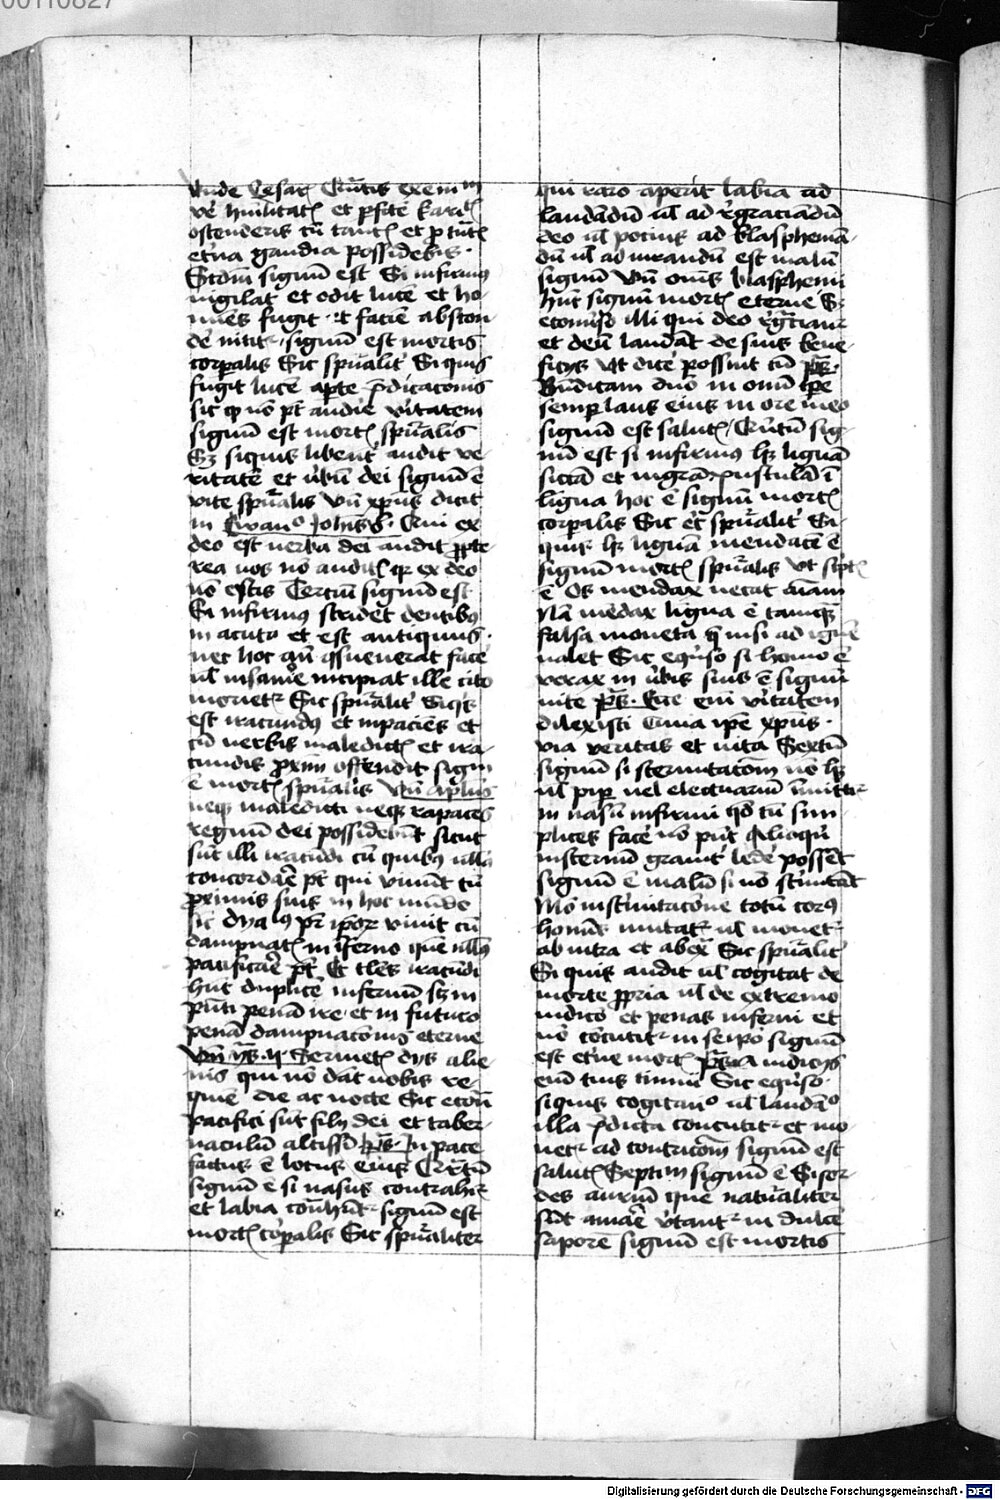 00110827
Unde Cesari Cristus exemm
ve humilitatis et perfcte karitatis
ostenderis cum tantis et pro tantis
eterna gaudia possidebis.
Secundum signum est Si infirmus
vigilat et odit lucem et ho-
mines fugit et faciem abscon
dere nititur signum est mortis
corporalis Sic spiritualiter Si quis
fugit lucem aperte predicacionis
sic quod non potest audire veritatem
signum est mortis spiritualis
Sed siquis libenter audit ve-
ritatem et verbum dei signum est
vite spiritualis Unde cristus dicit
in Ewangelio Johannis. Qui ex
deo est verba dei audit propte-
rea vos non auditis quia ex deo
non estis Tercium signum est
Si infirmus stridet dentibus
in acuta et est antiquus.
nec hoc quando consueverat facere
vel insanire incipiat ille cito
morietur Sic spiritualiter Siquis
est iracundus et inpaciens et
cum verbis maledictis et ira-
cundis proximum offendit signum
est mortis spiritualis Unde apostolus
neque maledicti neque rapaces
regnum dei possidebunt sicut
sunt illi iracundi cum quibus nullus
concordare potest qui vivunt cum
proximis suis in hoc mundo
sic dyabolus vivit cum
dampnatis in inferno quem nullus
pacificare potest Et tales iracundi
habent duplicem infernum scilicet in
presenti penam ire et in futuro
penam dampnacionis eterne
Unde Servietis dys alie-
nis qui non dant nobis re-
quiem die ac nocte Sic econtra
pacifici sunt filii dei et taber-
naculum altissimi ps. In pace
factus est locus eius Quartum
signum est si nasus contrahitur
et labia signum est
mortis corporalis Sic spiritualiter
qui raro aperit labia ad
laudandum vel ad regraciandum
deo vel pocius ad blaspheman-
dum vel ad iurandum est malum
signum Unde omnes blasphemi
habent signum mortis eterne Sed
econverso illi qui deo regraciantur
et deum laudant de suis bene-
ficiis Ut dicere possint cum ps.
Benedicam dominum in omni tempore
semper laus eius in ore meo
signum est salutis Quintum sig-
num est si infirmus habet linguam
siccam et nigram pustulam in
lingua hoc est signum mortis
corporalis Sic eciam spiritualiter Si-
quis habet linguam mendacem est
signum mortis spiritualis Ut scriptum
est Os mendax necat animam
Nam mendax lingua est tamquam
falsa moneta que nisi ad ignem
valet Sic equerso si homo est
verax in verbis suis est signum
vite ps. Ecce enim veritatem
dilexisti Quia ipse cristus.
via veritas et vita Sextum
signum si sternutacionem non habet
vel piper vel electuarium inmittitur
in nasum infirmi quod cum sim-
plices facere non possunt
nisternum graviter ledere possent
signum est malum si non sternutant
Nam in sternutacione totum corpus
hominis mutatur vel movetur
ab intra et ab extra Sic spiritualiter
Si quis audit vel cogitat de
morte propria vel de extremo
iudicio et penas inferni et
non concutitur in seipso signum
est eterne mortis ps. A iudiciis
enim tuis timui Sic equerso.
siquis cogitando vel laudando
illa predicta concutitur et mo-
vetur ad contricionem signum est
salutis Septimum signum est Si sor-
des aurium que naturaliter
sunt amare vertantur in dulcem
saporem signum est mortis
Digitalisierung gefördert durch die Deutsche Forschungsgemeinschaft - DFG